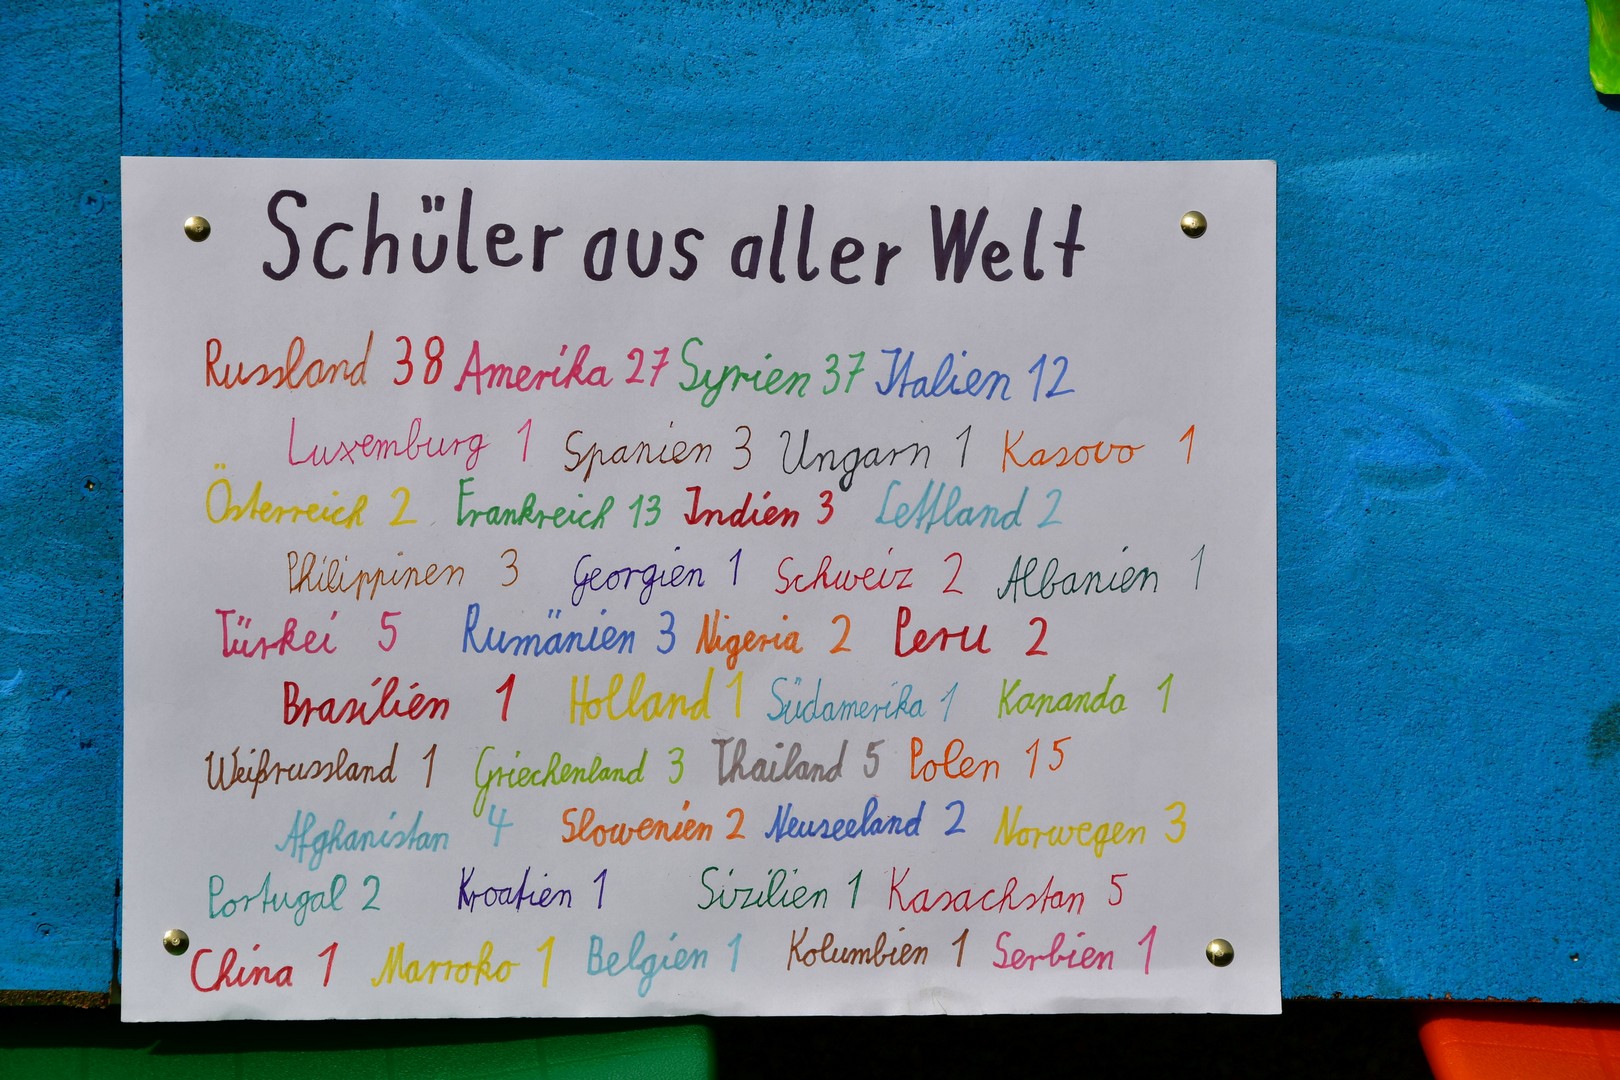 Schüler aus aller Welt
Russland 38 Amerika 27 Syrien 37 Italien 12
Luxemburg 1 Spanien 3 Ungarn 1 Kasovo 1
Österreich 2 Frankreich 13 Indien 3 Lettland 2
Philippinen 3 Georgien 1 Schweiz 2 Albanien 1
Türkei 5 Rumänien 3 Nigeria 2 Peru 2
Brasilien 1 Holland 1 Südamerika 1 Kananda 1
Weißrussland 1 Griechenland 3 Thailand 5 Polen 15
Afghanistan 4 Slowenien 2 Neuseeland 2 Norwegen 3
Portugal 2 Kroatien 1 Sizilien 1 Kasachstan 5
China 1 Marroko 1 Belgien 1 Kolumbien 1 Serbien 1